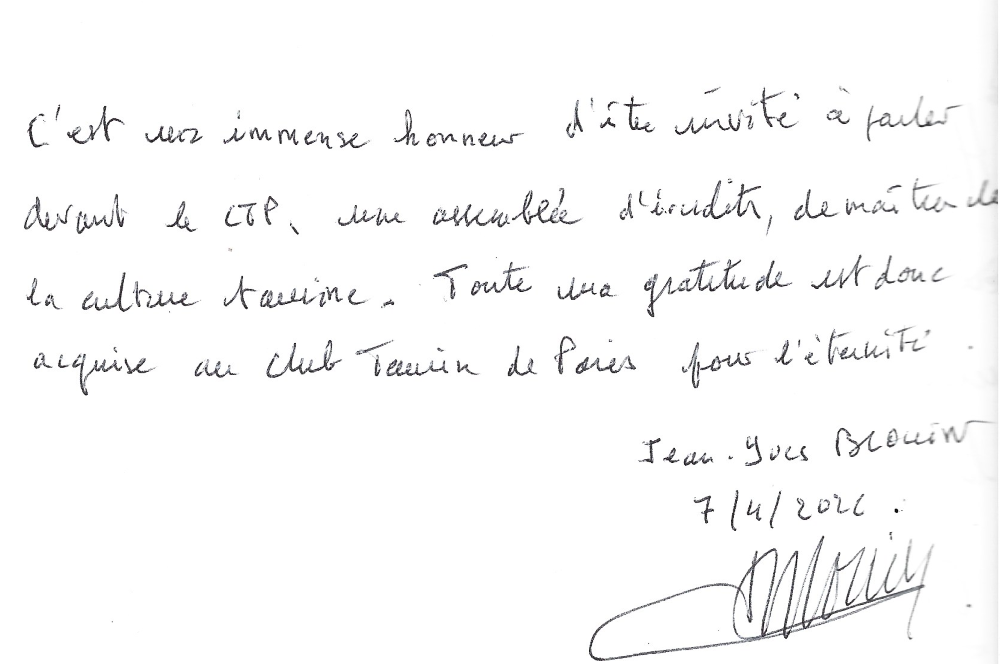 C'est un immense honneur d'être invité à parler
devant le CTP, une assemblée d'érudits, de maîtres de
la culture taurine. Toute ma gratitude est donc
acquise au Club Taurin de Paris pour l'éternité.
Jean-Yves Blouin
7/4/202